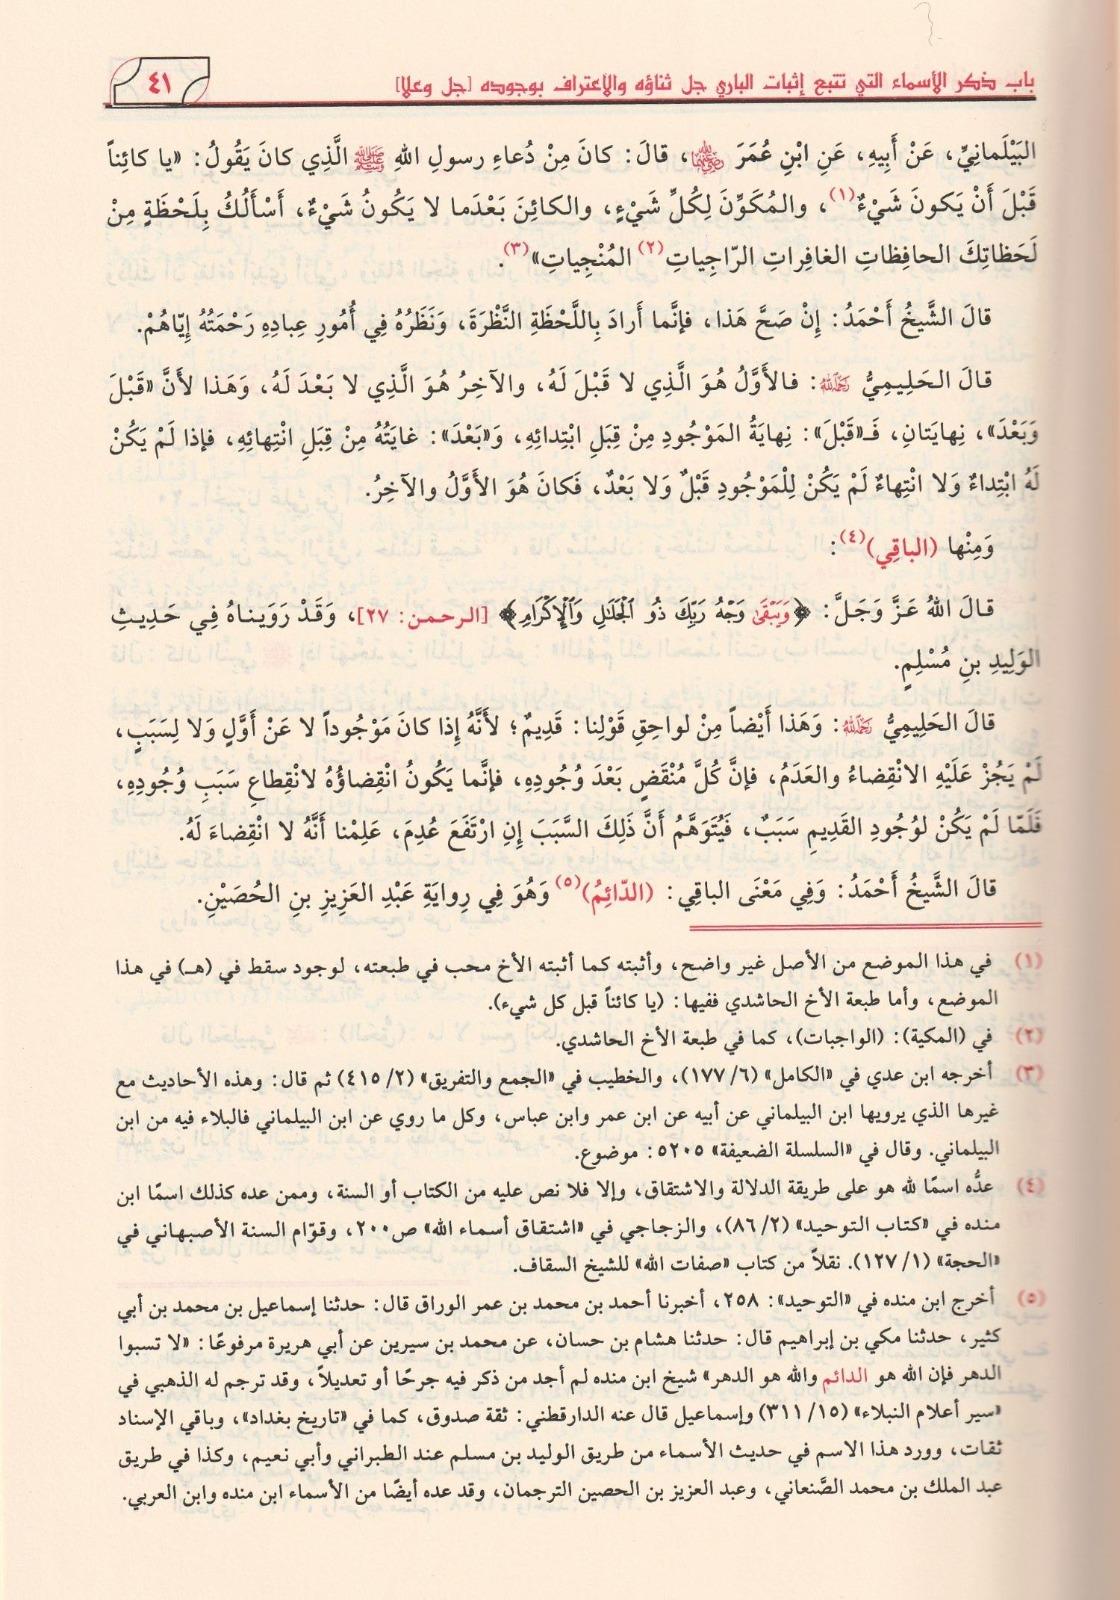 باب ذكر الأسماء التي تتبع إثبات الباري جل ثناؤه والاعتراف بوجوده [جل وعلا]
٤١
البَيْلَمانِيِّ، عَنْ أَبِيهِ، عَنِ ابْنِ عُمَرَ ﵄، قالَ: كانَ مِنْ دُعاءِ رسولِ اللهِ ﷺ الَّذِي كانَ يَقُولُ: «يا كائِناً
قَبْلَ أَنْ يَكونَ شَيْءٌ(١)، والمُكَوِّنَ لِكُلِّ شَيْءٍ، والكائِنَ بَعْدَما لا يَكُونُ شَيْءٌ، أَسْأَلُكُ بِلَحْظَةٍ مِنْ
لَحَظاتِكَ الحافِظاتِ الغافِراتِ الرّاجِياتِ(٢) المُنْجِياتِ»(٣).
قالَ الشَّيخُ أَحْمَدُ: إنْ صَحَّ هَذا، فإنَّما أَرادَ بِاللَّحْظَةِ النَّظْرَةَ، وَنَظَرُهُ فِي أُمُورِ عِبادِهِ رَحْمَتُهُ إيّاهُمْ.
قالَ الحَلِيمِيُّ ﵀: فالأَوَّلُ هُوَ الَّذِي لا قَبْلَ لَهُ، والآخِرُ هُوَ الَّذِي لا بَعْدَ لَهُ، وَهَذا لأَنَّ «قَبْلَ
وَبَعْدَ»، نِهايَتانِ، فَـ«قَبْلَ»: نِهايَةُ المَوْجُودِ مِنْ قِبَلِ ابْتِدائِهِ، وَ«بَعْدَ»: غايَتُهُ مِنْ قِبَلِ انْتِهائِهِ، فإذا لَمْ يَكُنْ
لَهُ ابْتِداءٌ وَلا انْتِهاءٌ لَمْ يَكُنْ لِلْمَوْجُودِ قَبْلٌ وَلا بَعْدٌ، فَكانَ هُوَ الأَوَّلُ والآخِرُ.
وَمِنْها (الباقِي)(٤):
قالَ اللهُ عَزَّ وَجَلَّ: ﴿وَيَبْقَىٰ وَجْهُ رَبِّكَ ذُو الْجَلَالِ وَالْإِكْرَامِ﴾ [الرحمن: ٢٧]، وَقَدْ رَوَيناهُ فِي حَدِيثِ
الوَلِيدِ بنِ مُسْلِمٍ.
قالَ الحَلِيمِيُّ ﵀: وَهَذا أَيْضاً مِنْ لواحِقِ قَوْلِنا: قَدِيمٌ؛ لأَنَّهُ إذا كانَ مَوْجُوداً لا عَنْ أَوَّلٍ وَلا لِسَبَبٍ،
لَمْ يَجُزْ عَلَيْهِ الانْقِضاءُ والعَدَمُ، فإنَّ كُلَّ مُنْقَضٍ بَعْدَ وُجُودِهِ، فإنَّما يَكُونُ انْقِضاؤُهُ لانْقِطاعِ سَبَبِ وُجُودِهِ،
فَلَمّا لَمْ يَكُنْ لوُجُودِ القَدِيمِ سَبَبٌ، فَيُتَوَهَّمُ أَنَّ ذَلِكَ السَّبَبَ إنِ ارْتَفَعَ عُدِمَ، عَلِمْنا أَنَّهُ لا انْقِضاءَ لَهُ.
قالَ الشَّيخُ أَحْمَدُ: وَفِي مَعْنَى الباقِي: (الدّائِمُ)(٥) وَهُوَ فِي رِوايَةِ عَبْدِ العَزِيزِ بنِ الحُصَيْنِ.
(١) في هذا الموضع من الأصل غير واضح، وأثبته كما أثبته الأخ محب في طبعته، لوجود سقط في (هـ) في هذا
الموضع، وأما طبعة الأخ الحاشدي ففيها: (يا كائناً قبل كل شيء).
(٢) في (المكية): (الواجبات)، كما في طبعة الأخ الحاشدي.
(٣) أخرجه ابن عدي في «الكامل» (٦/ ١٧٧)، والخطيب في «الجمع والتفريق» (٢/ ٤١٥) ثم قال: وهذه الأحاديث مع
غيرها الذي يرويها ابن البيلماني عن أبيه عن ابن عمر وابن عباس، وكل ما روي عن ابن البيلماني فالبلاء فيه من ابن
البيلماني. وقال في «السلسلة الضعيفة» ٥٢٠٥: موضوع.
(٤) عدُّه اسمًا لله هو على طريقة الدلالة والاشتقاق، وإلا فلا نص عليه من الكتاب أو السنة، وممن عده كذلك اسمًا ابن
منده في «كتاب التوحيد» (٢/ ٨٦)، والزجاجي في «اشتقاق أسماء الله» ص٢٠٠، وقوّام السنة الأصبهاني في
«الحجة» (١/ ١٢٧). نقلاً من كتاب «صفات الله» للشيخ السقاف.
(٥) أخرج ابن منده في «التوحيد»: ٢٥٨، أخبرنا أحمد بن محمد بن عمر الوراق قال: حدثنا إسماعيل بن محمد بن أبي
كثير، حدثنا مكي بن إبراهيم قال: حدثنا هشام بن حسان، عن محمد بن سيرين عن أبي هريرة مرفوعًا: «لا تسبوا
الدهر فإن الله هو الدائم والله هو الدهر» شيخ ابن منده لم أجد من ذكر فيه جرحًا أو تعديلاً، وقد ترجم له الذهبي في
«سير أعلام النبلاء» (١٥/ ٣١١) وإسماعيل قال عنه الدارقطني: ثقة صدوق، كما في «تاريخ بغداد»، وباقي الإسناد
ثقات، وورد هذا الاسم في حديث الأسماء من طريق الوليد بن مسلم عند الطبراني وأبي نعيم، وكذا في طريق
عبد الملك بن محمد الصَّنعاني، وعبد العزيز بن الحصين الترجمان، وقد عده أيضًا من الأسماء ابن منده وابن العربي.